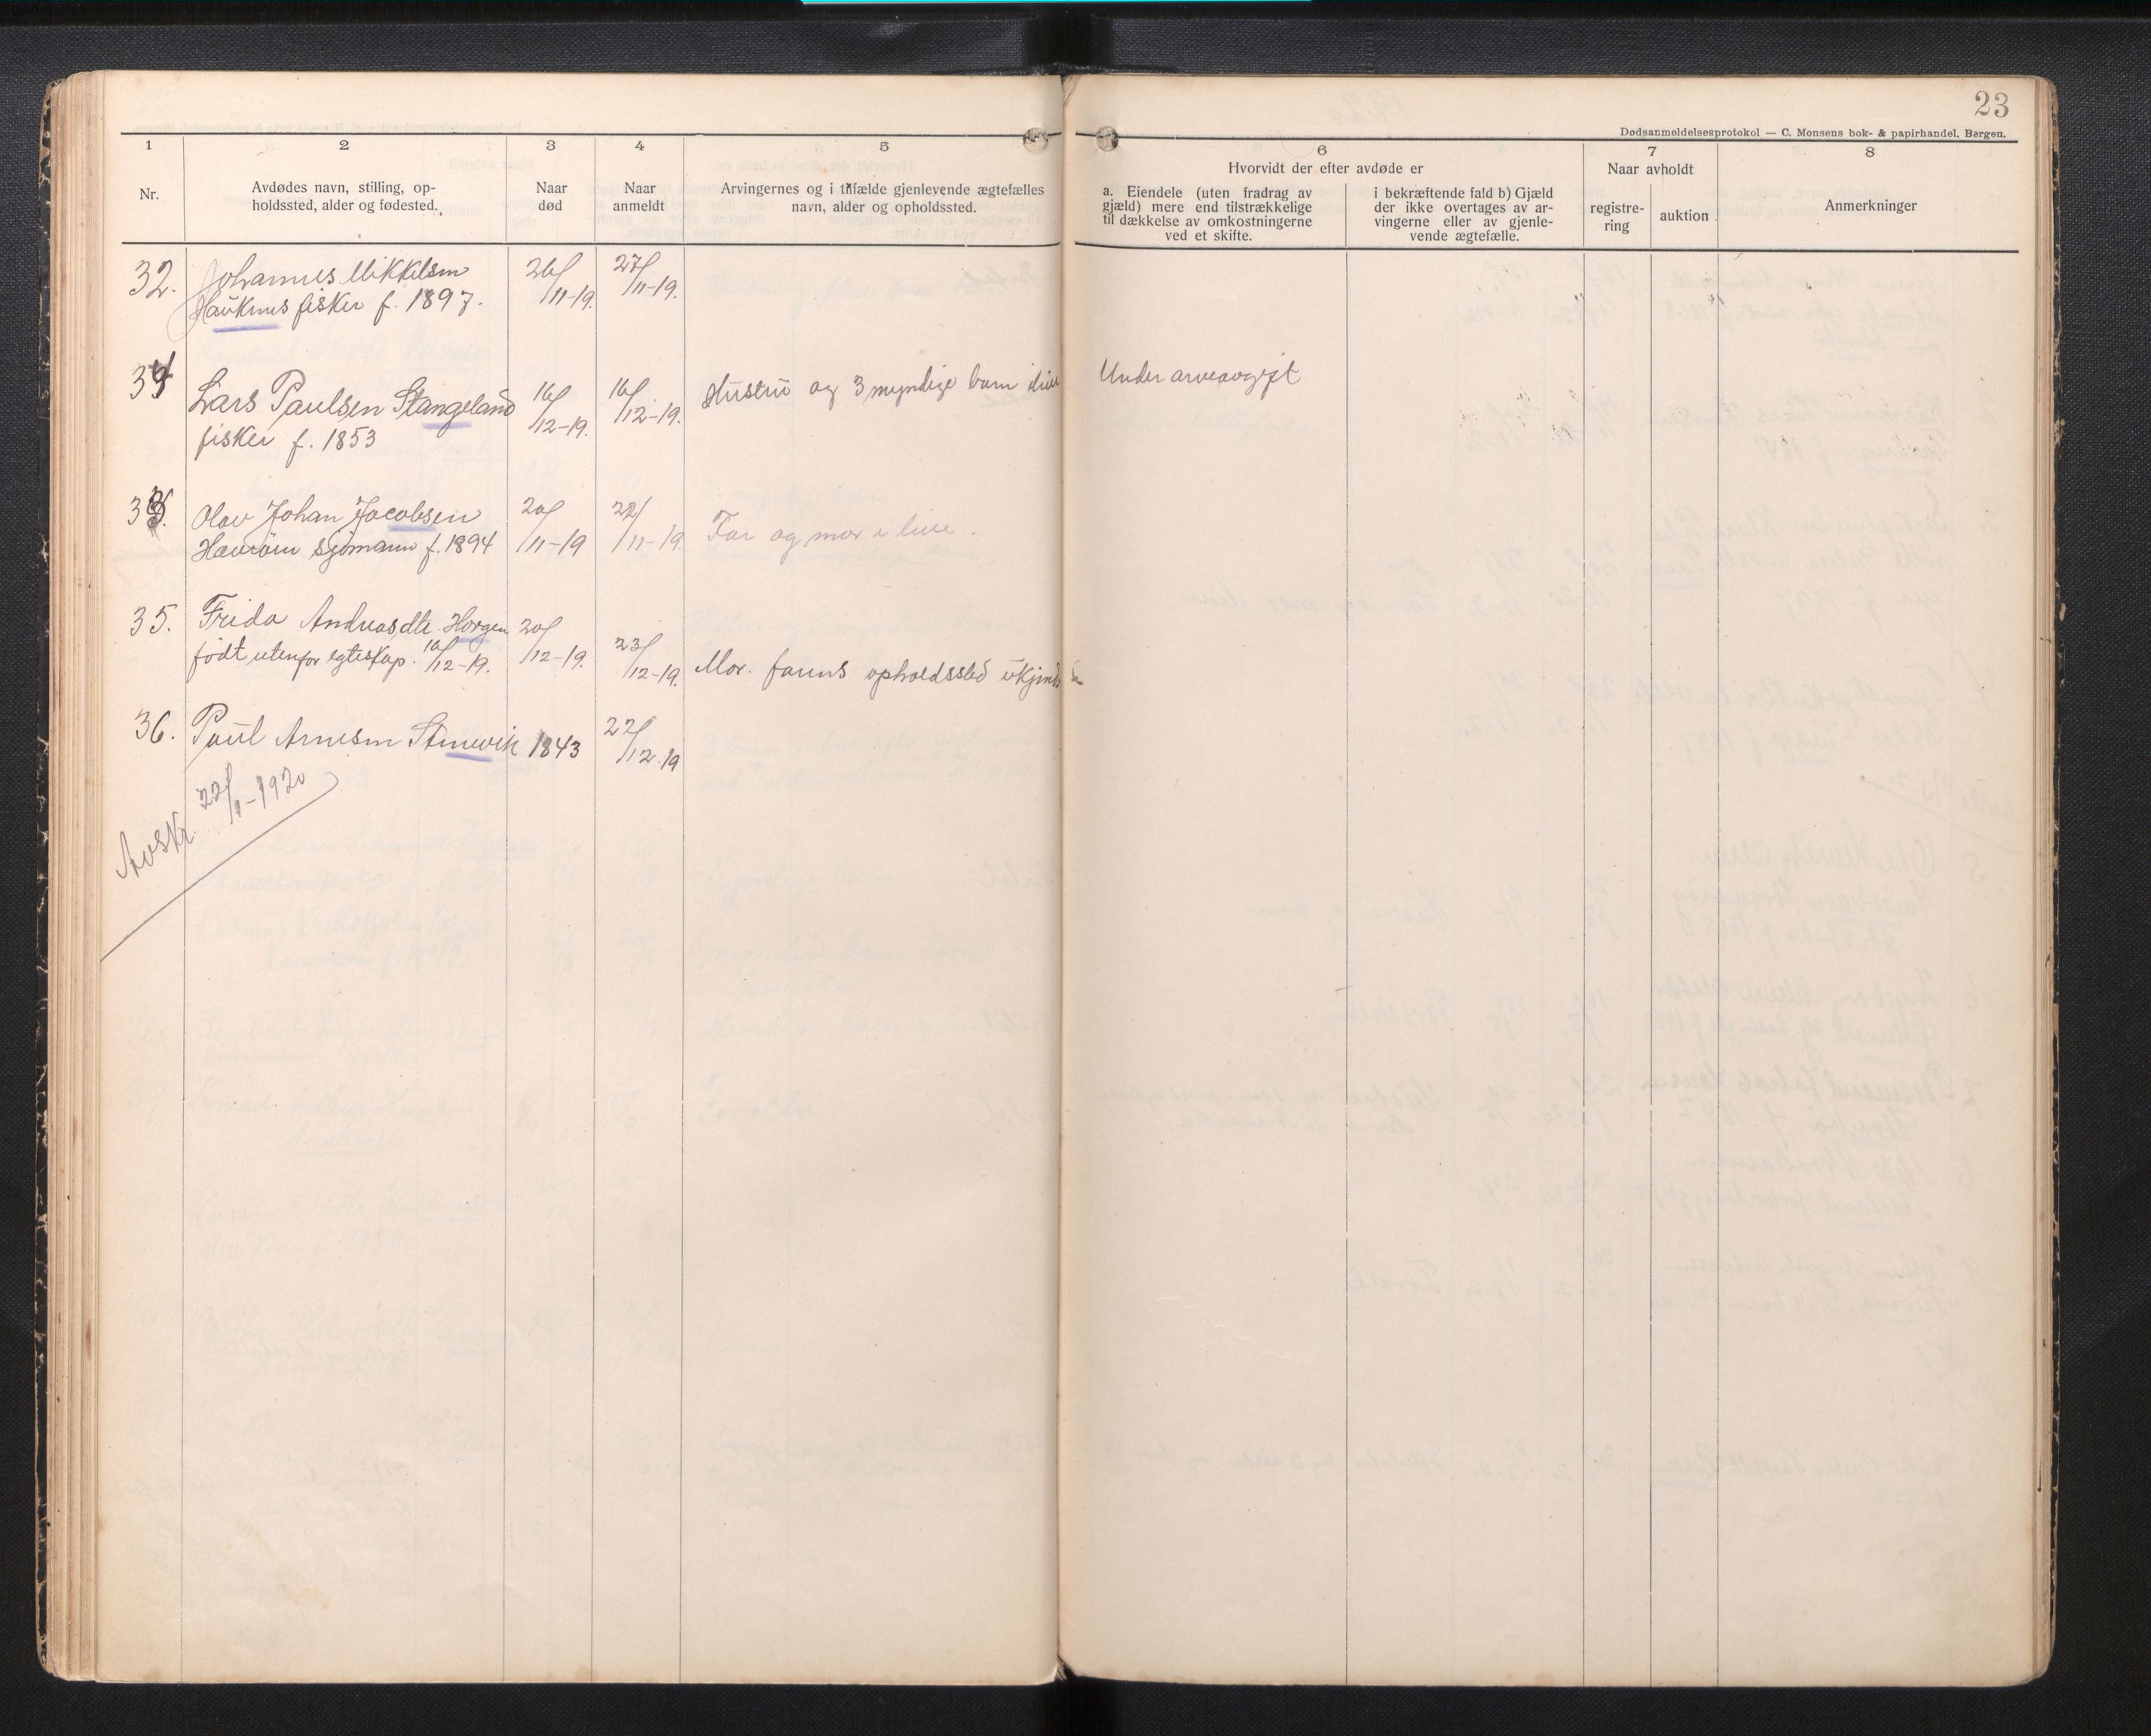 23
Dødsanmeldelsesprotokol — C. Monsens bok- & papirhandel, Bergen.
1
2
3
4
5
6
7
8
Nr.
Avdødes navn, stilling, op-
holdssted, alder og fødested.
Naar
død
Naar
anmeldt
Arvingernes og i tilfælde gjenlevende ægtefælles
navn, alder og opholdssted.
Hvorvidt der efter avdøde er
a. Eiendele (uten fradrag av
gjæld) mere end tilstrækkelige
til dækkelse av omkostningerne
ved et skifte.
i bekræftende fald b) Gjæld
der ikke overtages av ar-
vingerne eller av gjenle-
vende ægtefælle.
Naar avholdt
registre-
ring
auktion
Anmerkninger
32. Johannes Mikkelsen 26/11-19. 27/11-19.
Hauknes fisker f. 1897.
Lars Paulsen Stangeland 16/12-19. 16/12-19. Hustru og 3 myndige barn ilive Under arveavgift
fisker f. 1853
Olav Johan Jacobsen 20/11-19 22/11-19. Far og mor i live.
sjømann f. 1894
35. Frida Andreasdtr. Horgen 20/12-19. 23/12-19.
født utenfor egteskap. 10/12-19. Mor. farens opholdssted ukjendt
36. Paul Arnesen Stenevik 1843 22/12.19
Avskr. 22/1-1920